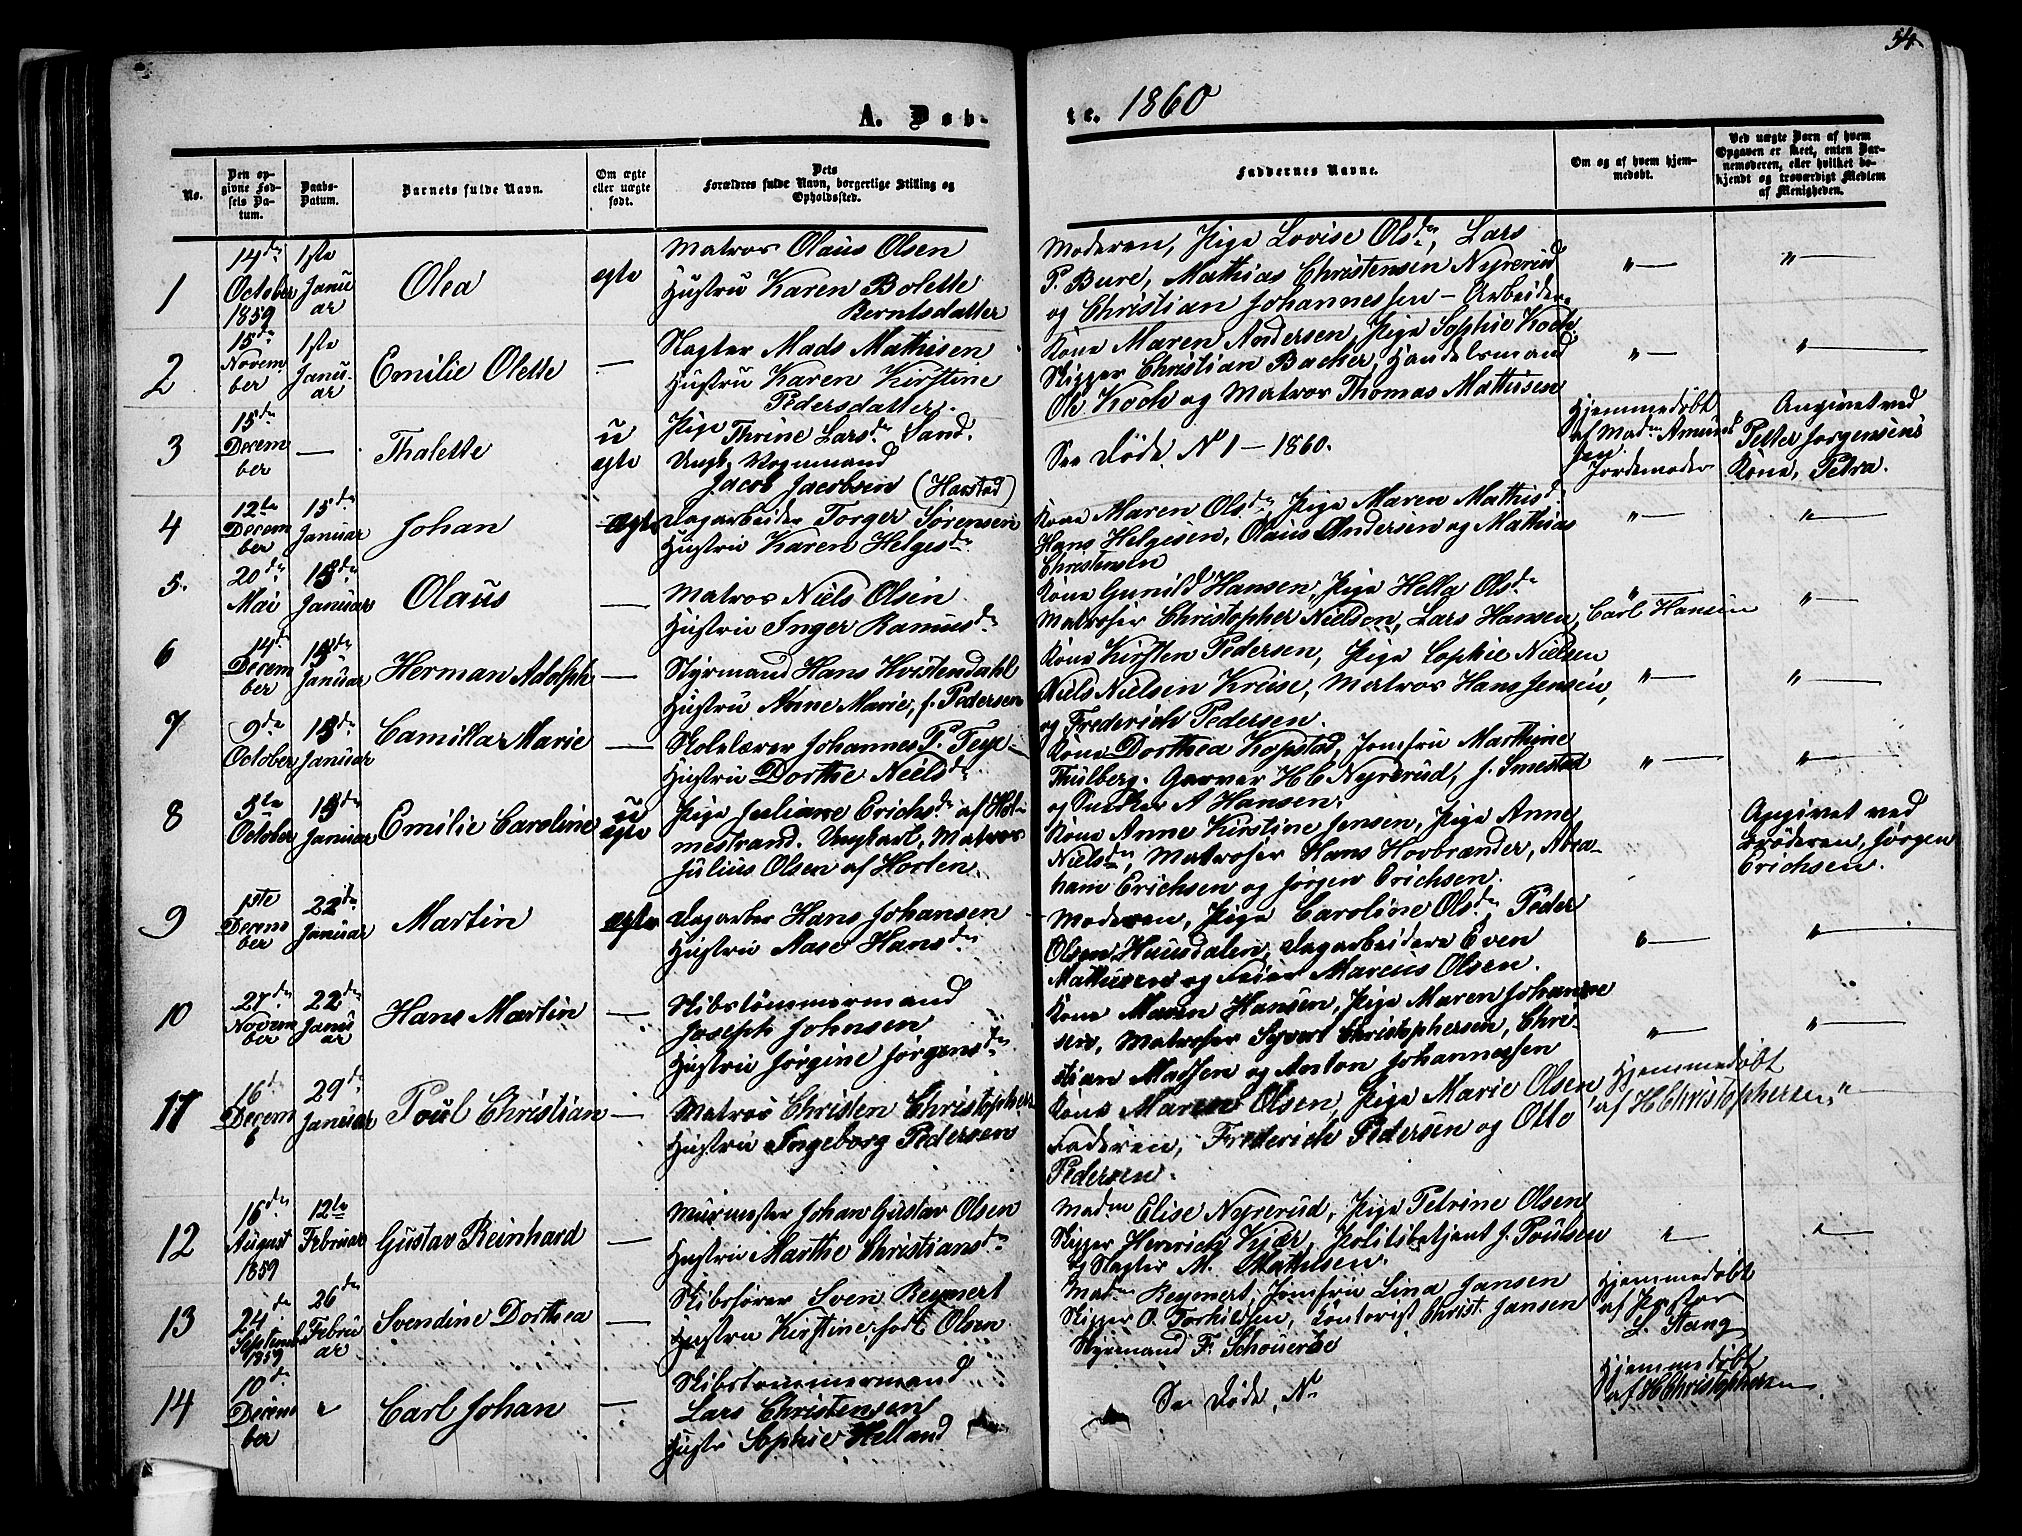 54
A. Døb-
te. 1860
No.
Den op-
givne Fød-
sels Da-
tum.
Daabs-
Datum.
Barnets fulde Navn.
Om ægte
eller uægte
født.
Dets
Forældres fulde Navn, borgerlige Stilling og
Opholdssted.
Faddernes Navne.
Om og af hvem hjem-
medøbt.
Ved uægte Barn af hvem
Opgaven er skeet, enten Bar-
nemoderen, eller hvilket be-
kjendt og troværdigt Medlem
af Menigheden.
1
14de
October
1859
1ste
Janu
ar
Olea
egte
Matros Olaus Olsen
Hustru Karen Bolette
Berntsdatter
Moderen, Pige Lovise Olsdn, Lars
P. Bure, Mathias Christensen Nyrerud
og Christian Johannessen – Arbeidere
"—
"—
2
15de
Novem
ber
1ste
Janu
ar
Emilie Olette
—
Slagter Mads Mathisen
Hustru Karen Kirstine
Pedersdatter.
Kone Maren Andersen, Pige Sophie Koch
Skipper Christian Backer, Handelsmand
Ole Koch og Matros Thomas Mathisen
"—
"—
3
15de
Decem
ber
—
Thalette
u
egte
Pige Thrine Larsdn Sand.
Ungk. Vognmand
Jacob Jacobsen (Harstad)
See Døde No 1 – 1860.
Hjemmedøbt
af Madm Amund
sen
Jordemoder
Angivet ved
Petter Jørgensens
Kone, Petra.
4
12te
Decem
ber
15de
Januar
Johan
egte
Dagarbeider Torger Sørensen
Hustru Karen Helgesdn
Kone Maren Olsdn, Pige Maren Mathisd.
Hans Helgesen, Olaus Andersen og Mathias
Christensen
"—
"—
5.
20de
Mai
15de
Januar
Olaus
—
Matros Niels Olsen
Hustru Inger Rasmusdn
Kone Gunild Hansen, Pige Hella Olsdn
Matroser Christopher Nielsen, Lars Hansen, Carl Hansen
"
"—
6
14de
Decem
ber
15de
Januar
Herman Adolph
—
Styrmand Hans Kvistendahl
Hustru Anne Marie, f. Pedersen
Kone Kirsten Pedersen, Pige Sophie Nielsen
Niels Nielsen Kruse, Matros Hans Jensen,
og Frederich Pedersen.
"—
"—
7
9de
October
15de
Januar
Camilla Marie
—
Skolelærer Johannes P. Teye
Hustru Dorthe Nielsdn
Kone Dorthea Kopstad, Jomfru Marthine
Thulberg. Garver H C Nyrerud, J. Smestad
og Snedker A Hansen.
"—
"—
8
5te
October
15de
Januar
Emilie Caroline
u
egte
Pige Juliane Erichsdn af Hol-
mestrand. Ungkarl, Matros
Julius Olsen af Horten.
Kone Anne Kirstine Jensen, Pige Anne
Nielsdn, Matroser Hans Hovbrænder, Abra-
ham Erichsen og Jørgen Erichsen.
Angivet ved
Broderen, Jørgen
Erichsen.
9
1ste
Decem
ber
22de
Januar
Martin
egte
Dagarber Hans Johansen
Hustru Aase Hansdn
Moderen, Pige Caroline Olsdn, Peder
Olsen Huusdalen, Dagarbeidere Even
Mathisen og Feier Marcus Olsen.
"—
"—
10
27de
Novem
ber
22de
Janu
ar
Hans Martin
—
Skibstømmermand
Joseph Johnsen
Hustru Jørgine Jørgensdn
Kone Maren Hansen, Pige Maren Johanne
sen, Matroser Syvert Christophersen, Chri-
stian Madsen og Anton Johannesen
"—
"—
11
16de
Decem
b
29de
Januar
Poul Christian
—
Matros Christen Christophers
Hustru Ingeborg Pedersen
Kone Maren Olsen, Pige Marie Olsen
Faderen, Frederich Pedersen og Otto
Pedersen.
Hjemmedøbt
af H Christophersen
"—
12
16de
August
1859
12te
Februar
Gustav Reinhard
—
Murmester Johan Gustav Olsen
Hustru Marthe Christiansdn
Madm Elise Nyrerud, Pige Petrine Olsen
Skipper Henrich Kjær, Politibetjent J. Poulsen
og Slagter M. Mathisen.
"—
"—
13
24de
September
1859
26de
Febru
ar
Svendine Dorthea
—
Skibsfører Sven Reymert
Hustru Kirstine født Olsen
Madm Reymert, Jomfru Lina Jansen
Skipper O. Torkildsen, Contorist Christ. Jansen
Styrmand F. Schouerbe
Hjemmedøbt
af Pastor
L. Stang
14
10de
Decem
ber
"
Carl Johan
—
Skibstømmermand
Lars Christensen
Hustr Sophie Helland
See Døde, No
Hjemmedøbt
af H Christophersen.